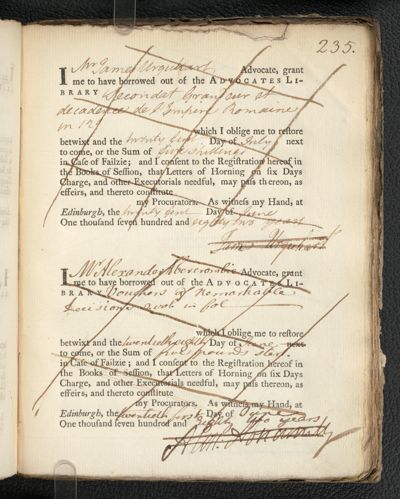 235.
I Mr James Urquhart Advocate, grant
me to have borrowed out of the ADVOCATES LI-
BRARY Secondat Grandeur et
decadence de l'Empire Romaine
in 12°
which I oblige me to reſtore
betwixt and the twenty first Day of July next
to come, or the Sum of five shillings
in Caſe of Failzie; and I conſent to the Regiſtration hereof in
the Books of Seſſion, that Letters of Horning on ſix Days
Charge, and other Executorials needful, may paſs thereon, as
effeirs, and thereto conſtitute
my Procurators. As witneſs my Hand, at
Edinburgh, the twenty first Day of June
One thouſand ſeven hundred and eighty two years
James Urquhart
I Mr Alexander Abercrombie Advocate, grant
me to have borrowed out of the ADVOCATES LI-
BRARY of Remarkable
Decisions in fol
which I oblige me to reſtore
betwixt and the twenty Day of June next
to come, or the Sum of five pounds ster.
in Caſe of Failzie; and I conſent to the Regiſtration hereof in
the Books of Seſſion, that Letters of Horning on ſix Days
Charge, and other Executorials needful, may paſs thereon, as
effeirs, and thereto conſtitute
my Procurators. As witneſs my Hand, at
Edinburgh, the twentieth first Day of June
One thouſand ſeven hundred and Eighty two years